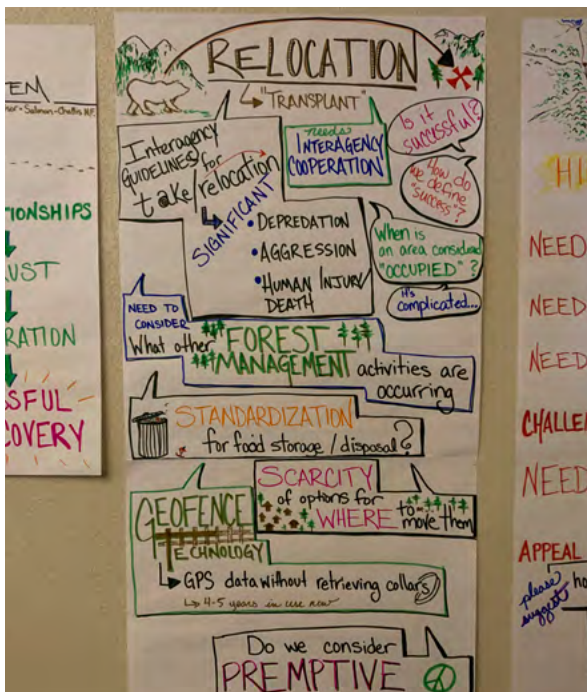 RELOCATION
"TRANSPLANT"
Interagency
GUIDELINES for
take/relocation
SIGNIFICANT
• DEPREDATION
• AGGRESSION
• HUMAN INJURY/
DEATH
needs
INTERAGENCY
COOPERATION
Is it
successful?
How do
we define
"success"?
When is
an area considered
"OCCUPIED"?
it's
complicated...
NEED TO
CONSIDER
What other
FOREST
MANAGEMENT
activities are
occurring
STANDARDIZATION
for food storage/disposal?
SCARCITY
of options for
WHERE to move them
GEOFENCE
TECHNOLOGY
GPS data without retrieving collars
4-5 years in use now
Do we consider
PREMPTIVE
EM
Salmon-Challis N.F.
TIONSHIPS
UST
RATION
SSFUL
COVERY
HI
NEED
NEED
NEED
CHALLEN
NEED
APPEAL
please
suggest
ho